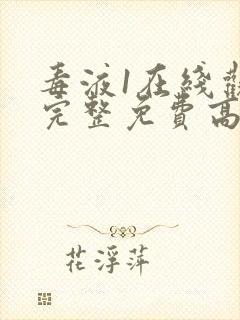 毒液1在线觀
完整免費高
花浮萍